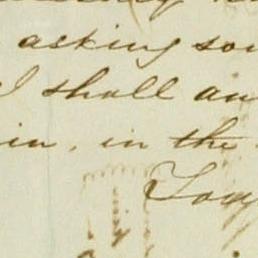 asking sou
I shall an
in, in the
You